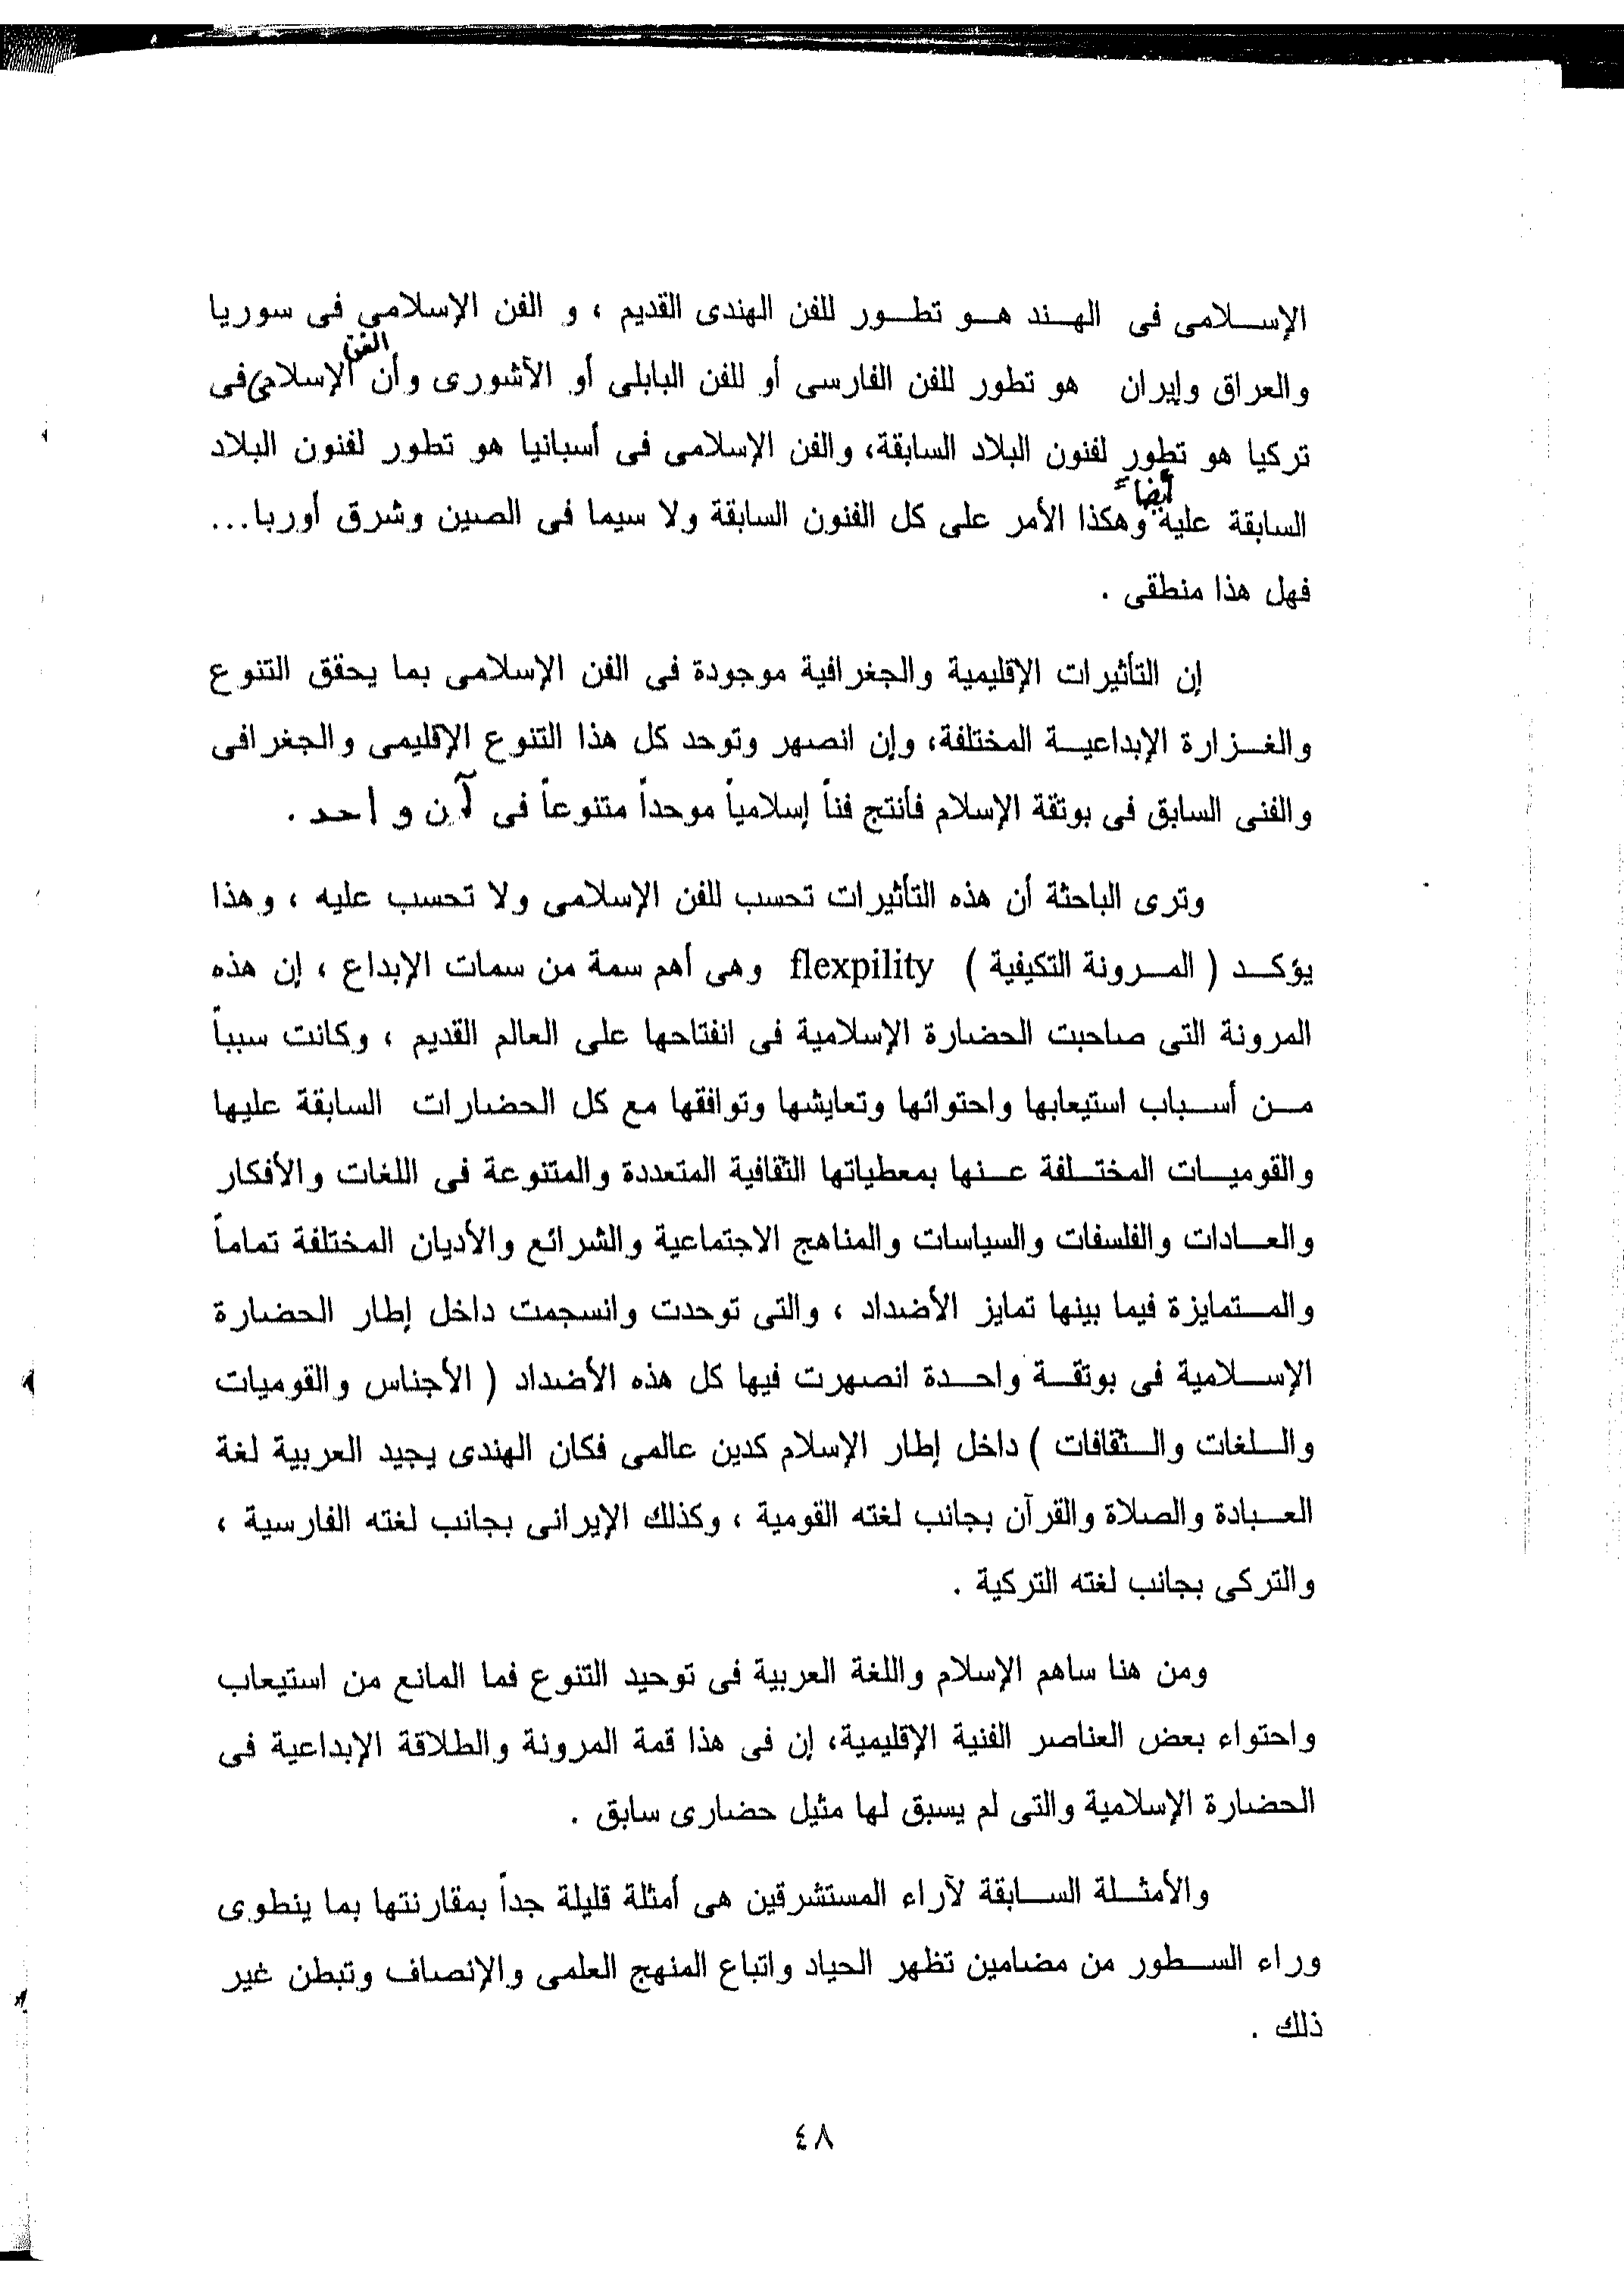 الإسلامى فى الهند هو تطور للفن الهندى القديم ، و الفن الإسلامى فى سوريا
والعراق وإيران هو تطور للفن الفارسى أو للفن البابلى أو الأشورى وأن الفن الإسلامى فى
تركيا هو تطور لفنون البلاد السابقة، والفن الإسلامى فى أسبانيا هو تطور لفنون البلاد
السابقة عليه أيضاً وهكذا الأمر على كل الفنون السابقة ولا سيما فى الصين وشرق أوربا...
فهل هذا منطقى .
إن التأثيرات الإقليمية والجغرافية موجودة فى الفن الإسلامى بما يحقق التنوع
والغزارة الإبداعية المختلفة، وإن انصهر وتوحد كل هذا التنوع الإقليمى والجغرافى
والفنى السابق فى بوتقة الإسلام فأنتج فناً إسلامياً موحداً متنوعاً فى آن واحد .
وترى الباحثة أن هذه التأثيرات تحسب للفن الإسلامى ولا تحسب عليه ، وهذا
يؤكد ( المرونة التكيفية ) flexpility وهى أهم سمة من سمات الإبداع ، إن هذه
المرونة التى صاحبت الحضارة الإسلامية فى انفتاحها على العالم القديم ، وكانت سبباً
من أسباب استيعابها واحتوائها وتعايشها وتوافقها مع كل الحضارات السابقة عليها
والقوميات المختلفة عنها بمعطياتها الثقافية المتعددة والمتنوعة فى اللغات والأفكار
والعادات والفلسفات والسياسات والمناهج الاجتماعية والشرائع والأديان المختلفة تماماً
والمتمايزة فيما بينها تمايز الأضداد ، والتى توحدت وانسجمت داخل إطار الحضارة
الإسلامية فى بوتقة واحدة انصهرت فيها كل هذه الأضداد ( الأجناس والقوميات
واللغات والثقافات ) داخل إطار الإسلام كدين عالمى فكان الهندى يجيد العربية لغة
العبادة والصلاة والقرآن بجانب لغته القومية ، وكذلك الإيرانى بجانب لغته الفارسية ،
والتركى بجانب لغته التركية .
ومن هنا ساهم الإسلام واللغة العربية فى توحيد التنوع فما المانع من استيعاب
واحتواء بعض العناصر الفنية الإقليمية، إن فى هذا قمة المرونة والطلاقة الإبداعية فى
الحضارة الإسلامية والتى لم يسبق لها مثيل حضارى سابق .
والأمثلة السابقة لآراء المستشرقين هى أمثلة قليلة جداً بمقارنتها بما ينطوى
وراء السطور من مضامين تظهر الحياد واتباع المنهج العلمى والإنصاف وتبطن غير
ذلك .
٤٨